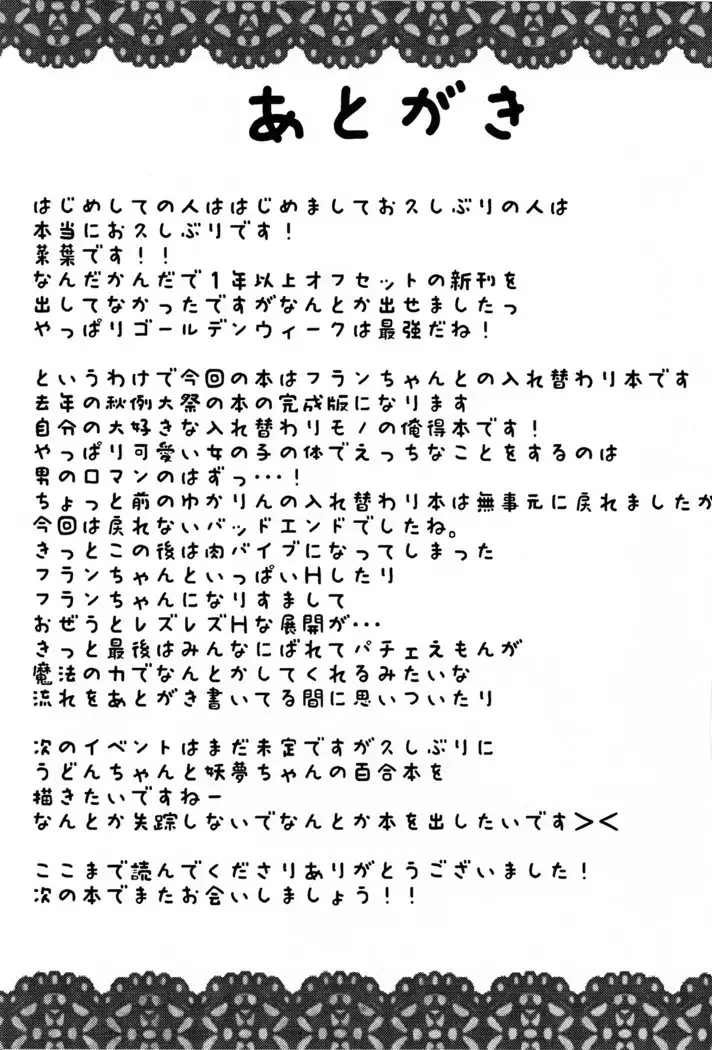 あとがき
はじめしての人ははじめましてお久しぶりの人は
本当にお久しぶりです！
菜葉です！！
なんだかんだで１年以上オフセットの新刊を
出してなかったですがなんとか出せましたっ
やっぱりゴールデンウィークは最強だね！
というわけで今回の本はフランちゃんとの入れ替わり本です
去年の秋例大祭の本の完成版になります
自分の大好きな入れ替わりモノの俺得本です！
やっぱり可愛い女の子の体でえっちなことをするのは
男のロマンのはずっ・・・！
ちょっと前のゆかりんの入れ替わり本は無事元に戻れましたが
今回は戻れないバッドエンドでしたね。
きっとこの後は肉バイブになってしまった
フランちゃんといっぱいHしたり
フランちゃんになりすまして
おぜうとレズレズHな展開が・・・
きっと最後はみんなにばれてパチェえもんが
魔法の力でなんとかしてくれるみたいな
流れをあとがき書いてる間に思いついたり
次のイベントはまだ未定ですが久しぶりに
うどんちゃんと妖夢ちゃんの百合本を
描きたいですねー
なんとか失踪しないでなんとか本を出したいです＞＜
ここまで読んでくださりありがとうございました！
次の本でまたお会いしましょう！！